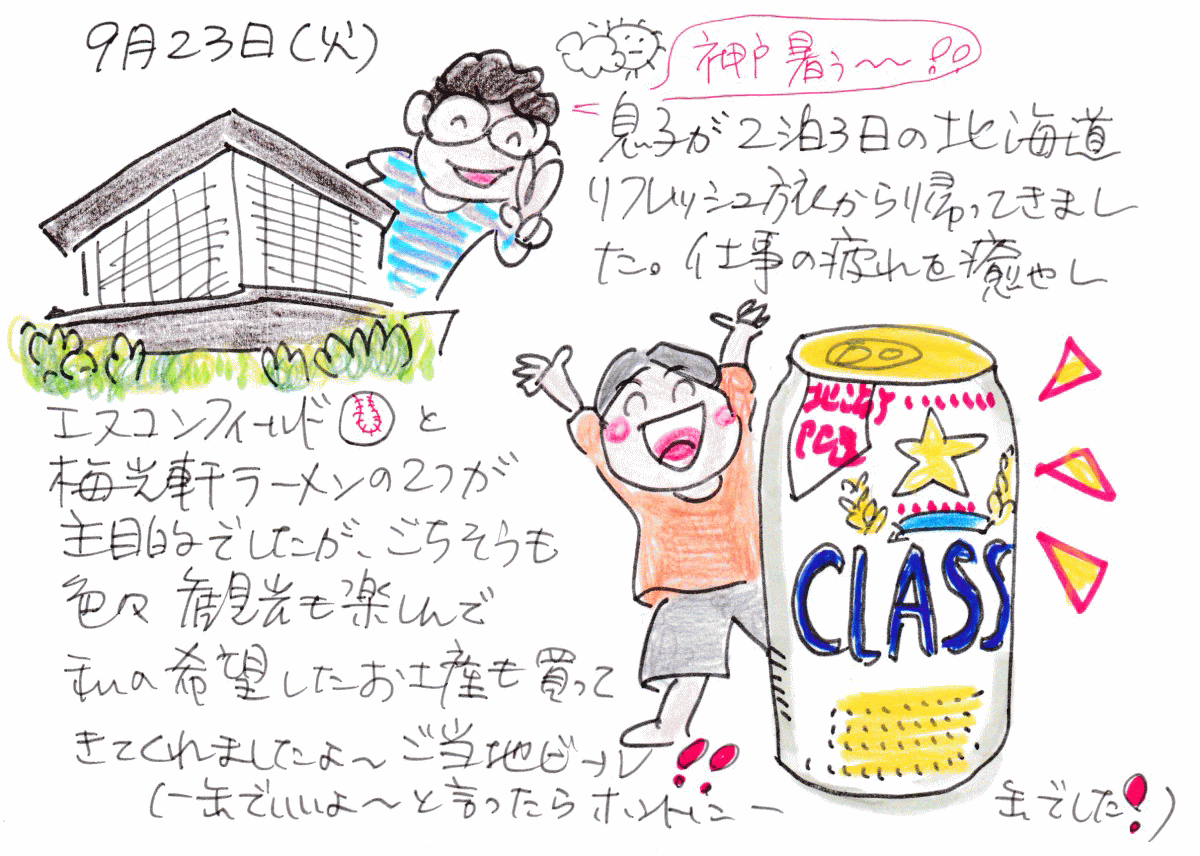 9月23日(火)
神戸暑う〜〜!!
息子が2泊3日の北海道
リフレッシュ旅から帰ってきまし
た。仕事の疲れを癒やし
エスコンフィールドと
梅光軒ラーメンの2つが
主目的でしたが、ごちそうも
色々 観光も楽しんで
私の希望したお土産も買って
きてくれましたよ〜ご当地ビール!!
(一缶でいいよ〜と言ったらホントに一
缶でした!)
CLASS